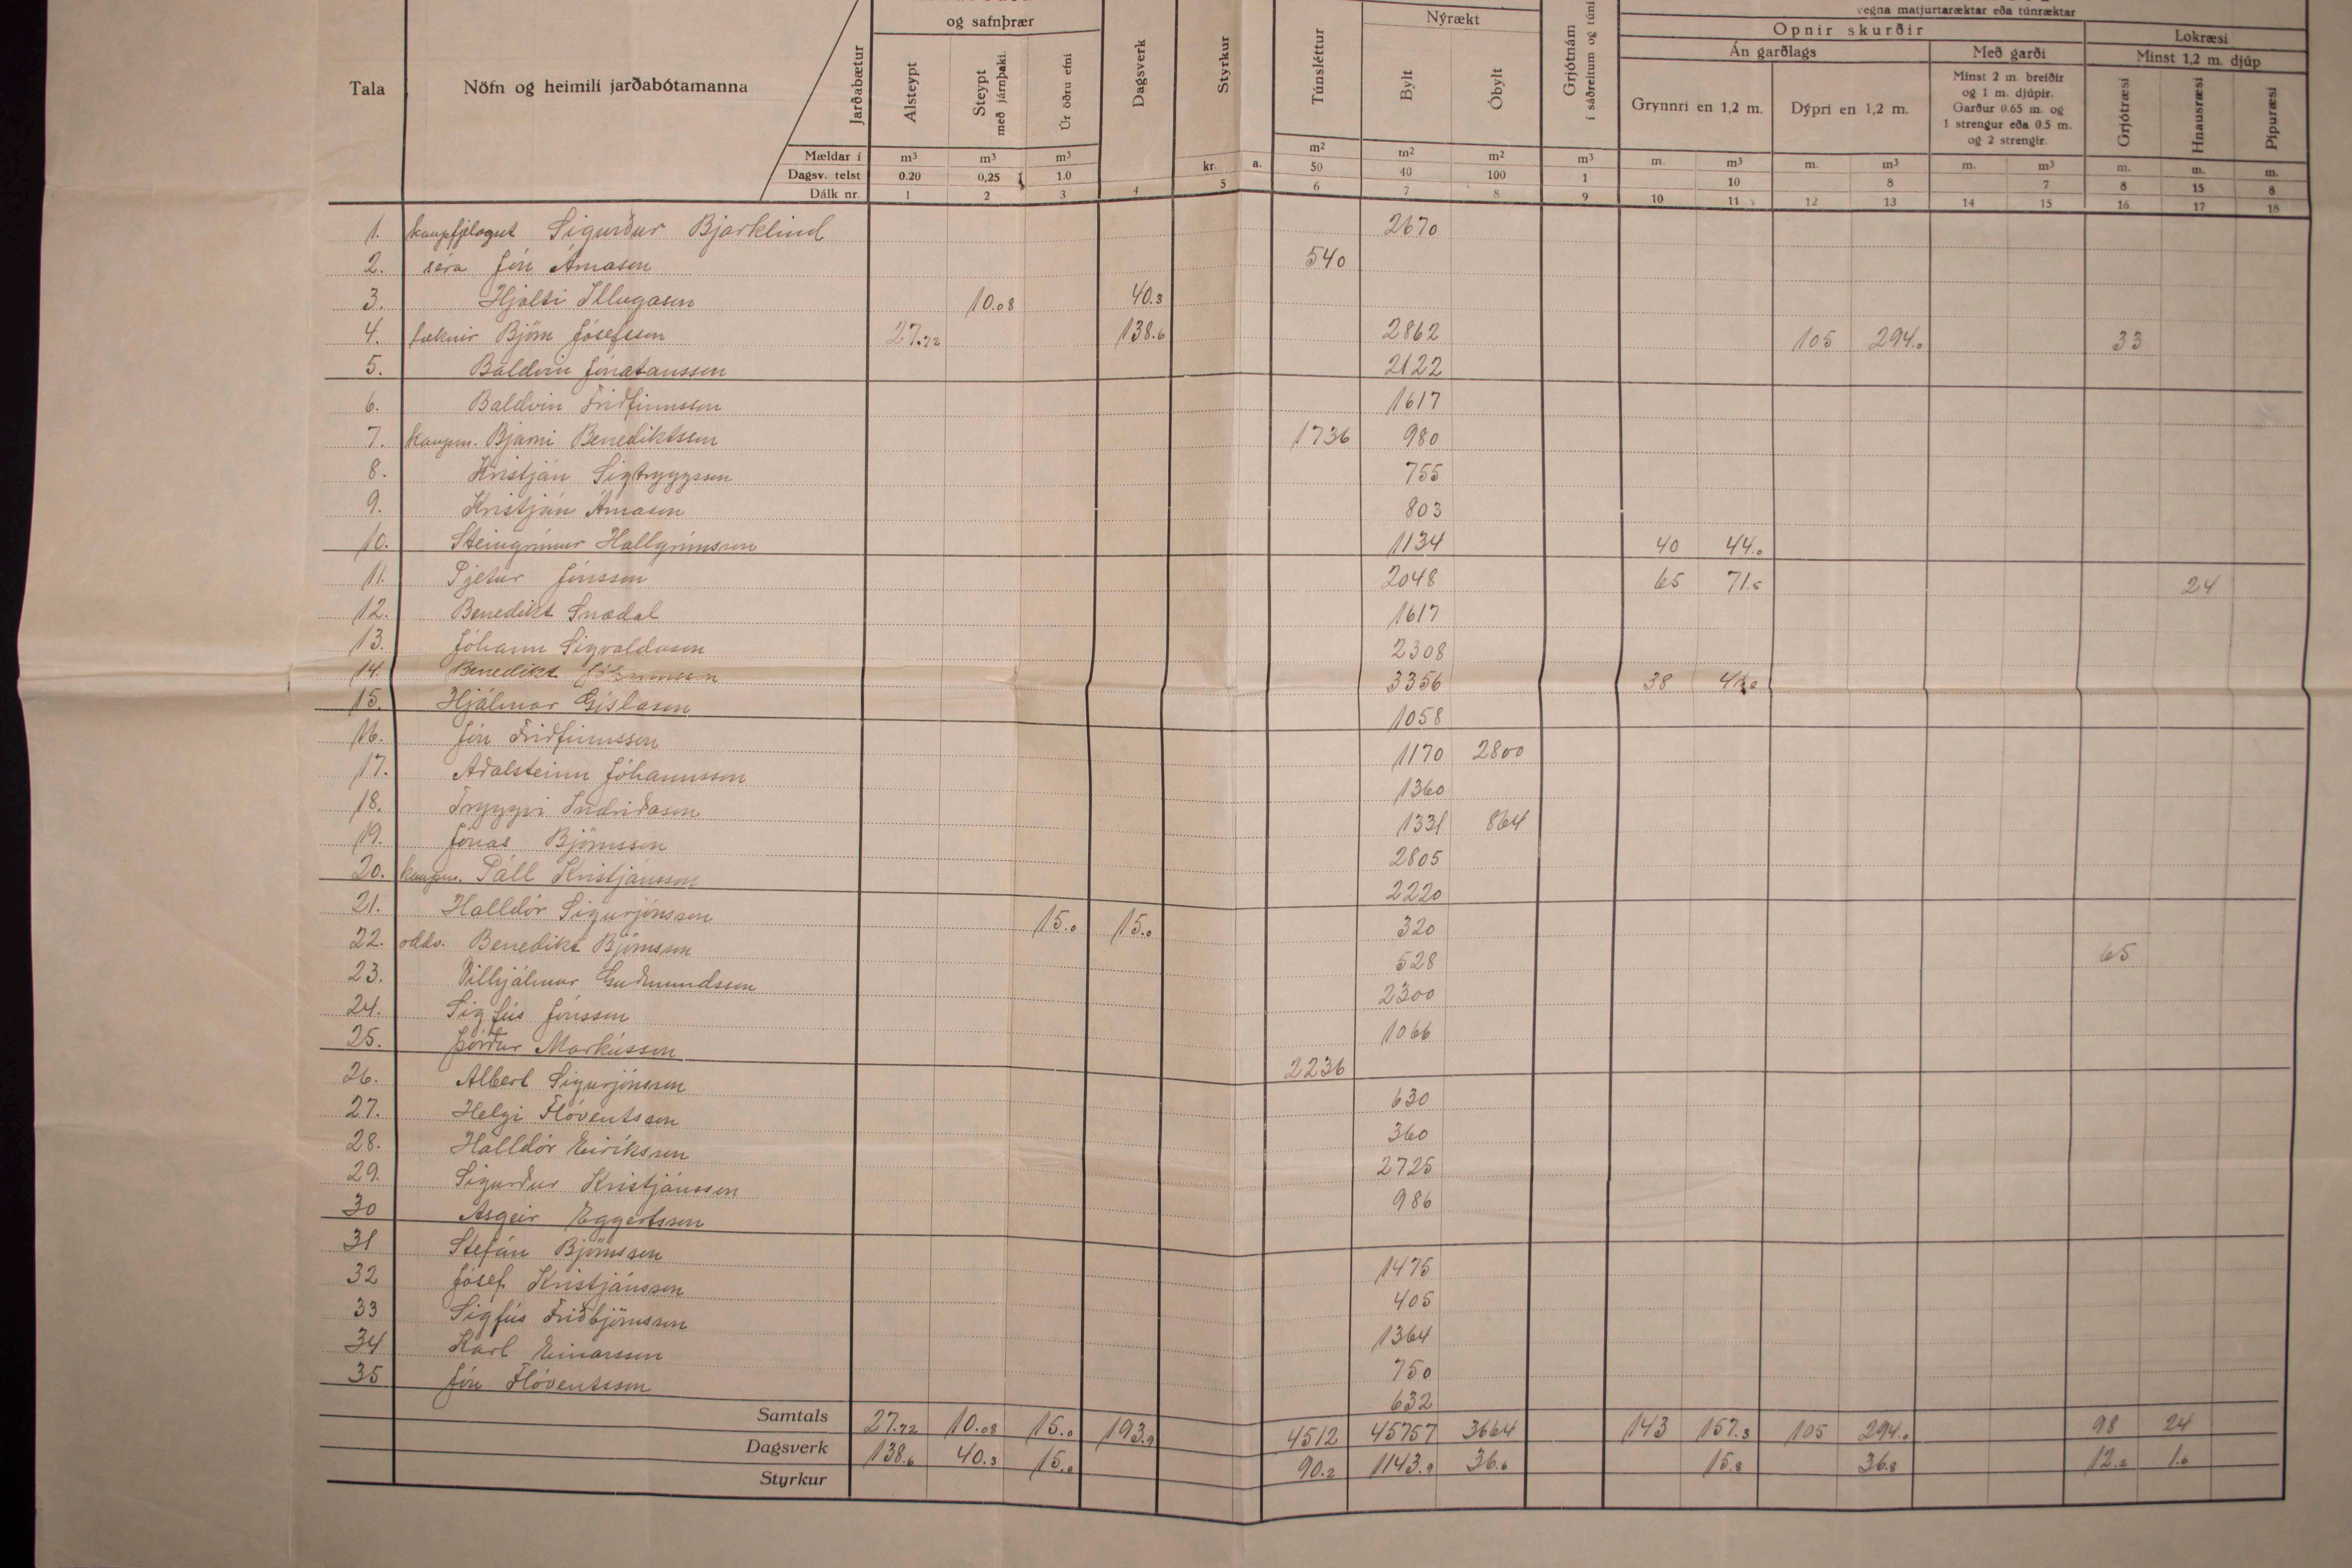 og safnþrær
Nýrækt
vegna matjurtaræktar eða túnræktar
Opnir skurðir
Lokræsi
Án garðlags
Með garði
Minst 1,2 m. djúp
Tala
Nöfn og heimili jarðabótamanna
Jarðabætur
Alsteypt
Steypt með járnþaki.
Úr öðru efni
Dagsverk
Styrkur
Túnsléttur
Bylt
Óbylt
Grjótnám í sáðreitum og túni
Grynnri en 1,2 m.
Dýpri en 1,2 m.
Minst 2 m. breiðir og 1 m. djúpir. Garður 0.65 m. og 1 strengur eða 0.5 m. og 2 strengir.
Grjótræsi
Hnausræsi
Pípuræsi
Mældar í m³ m³ m³ kr. a. m² m² m² m³ m. m³ m. m³ m. m³ m. m. m.
Dagsv. telst 0.20 0,25 1.0 50 40 100 1 10 8 7 8 15 8
Dálk nr. 1 2 3 4 5 6 7 8 9 10 11 12 13 14 15 16 17 18
1. kaupfjelagsst Sigurður Bjarklind 2670
2. séra Jón Árnason 540
3. Hjalti Illugason 10.08 40.3
4. læknir Björn Jósefsson 27.72 138.6 2862 105 294.0 33
5. Baldvin Jónatansson 2122
6. Baldvin Friðfinnsson 1617
7. kaupm. Bjarni Benediktsson 1736 980
8. Kristján Sigtryggsson 755
9. Kristján Árnason 803
10. Steingrímur Hallgrímsson 1134 40 44.0
11. Pjetur Jónsson 2048 65 71.5 24
12. Benedikt Snædal 1617
13. Jóhann Sigvaldason 2308
14. Benedikt 3356 38
15. Hjálmar Gíslason 1058
16. Jón Friðfinnsson 1170 2800
17. Aðalsteinn Jóhannsson 1360
18. Tryggvi Indriðason 1331 864
19. Jónas Björnsson 2805
20. kaupm. Páll Kristjánsson 2220
21. Halldór Sigurjónsson 15.0 15.0 320
22. oddv. Benedikt Björnsson 528 65
23. Vilhjálmur Guðmundsson 2300
24. Sigfús Jónsson 1066
25. Þórður Markússon 2236
26. Albert Sigurjónsson 630
27. Helgi Flóventsson 360
28. Halldór Eiríksson 2725
29. Sigurður Kristjánsson 986
30 Asgeir Eggertsson
31 Stefán Björnsson 1475
32 Jósef Kristjánsson 405
33 Sigfús Friðbjörnsson 1364
34 Karl Einarsson 750
35 Jón Flóventsson 632
Samtals 27.72 10.08 15.0 193.9 4512 45757 3664 143 157.3 105 294.0 98 24
Dagsverk 138.6 40.3 15.0 90.2 1143.9 36.6 15.8 36.8 12.2 1.6
Styrkur